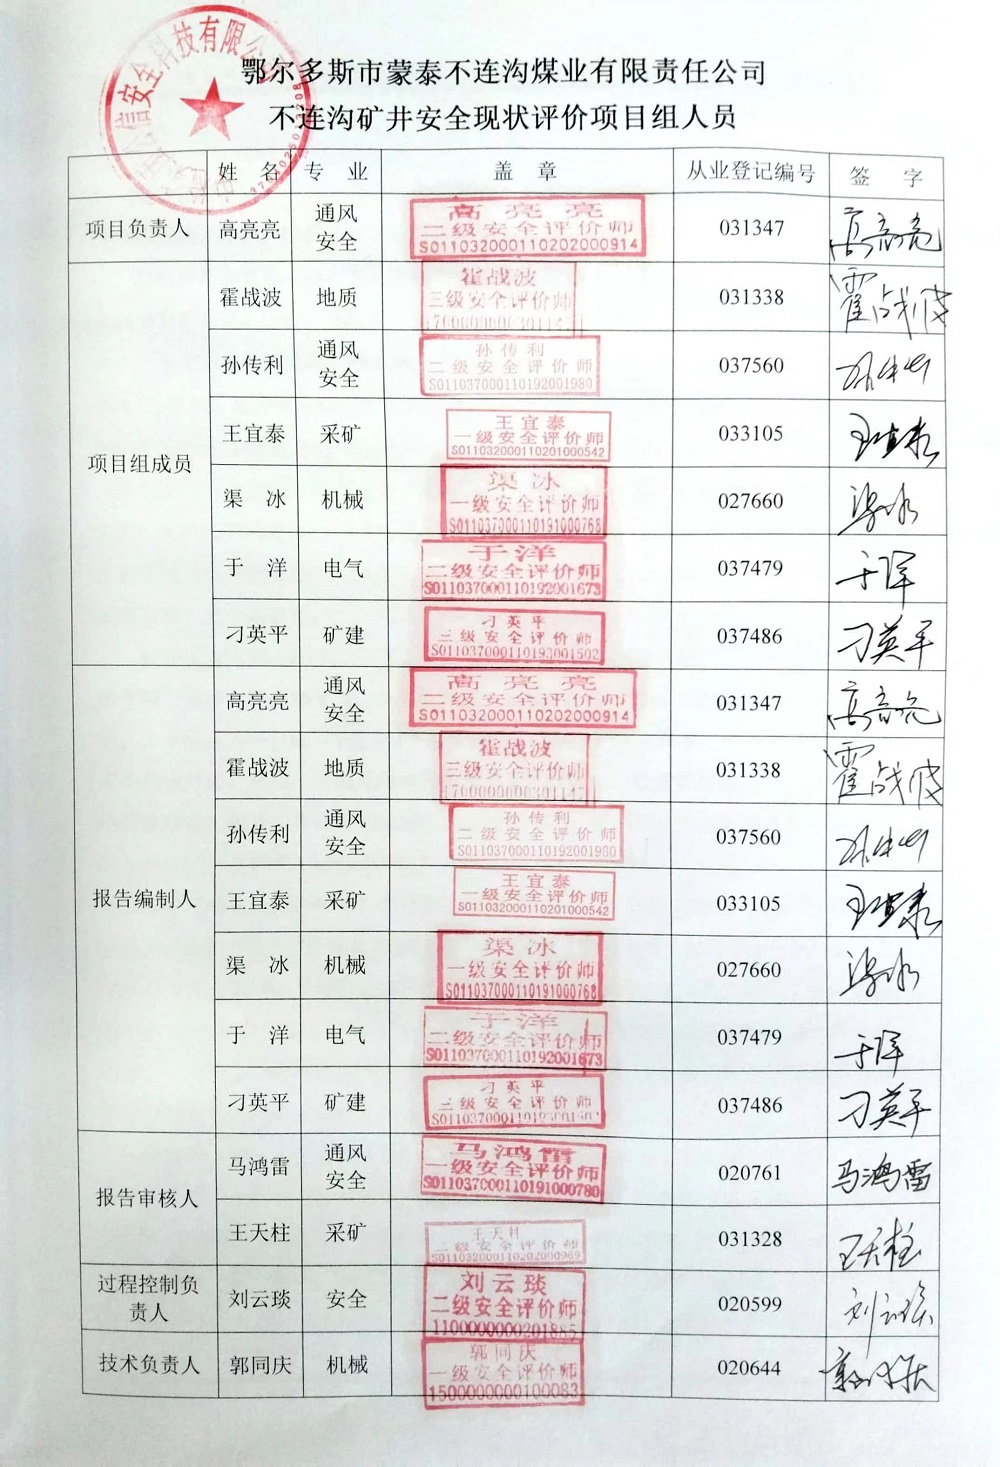 鄂尔多斯市蒙泰不连沟煤业有限责任公司
不连沟矿井安全现状评价项目组人员
安全科技有限公司
姓 名 专 业 盖 章 从业登记编号 签 字
项目负责人 高亮亮 通风安全 高亮亮 二级安全评价师 S011032000110202000914 031347 高亮亮
项目组成员
霍战波 地质 霍战波 三级安全评价师 031338 霍战波
孙传利 通风安全 孙传利 二级安全评价师 S011037000110192001980 037560
王宜泰 采矿 王宜泰 一级安全评价师 S011032000110201000542 033105 王宜泰
渠 冰 机械 渠冰 一级安全评价师 S011037000110191000768 027660 渠冰
于 洋 电气 于洋 二级安全评价师 S011037000110192001673 037479 于洋
刁英平 矿建 刁英平 三级安全评价师 S011037000110193001502 037486 刁英平
报告编制人
高亮亮 通风安全 高亮亮 二级安全评价师 S011032000110202000914 031347 高亮亮
霍战波 地质 霍战波 三级安全评价师 031338 霍战波
孙传利 通风安全 孙传利 二级安全评价师 S011037000110192001980 037560
王宜泰 采矿 王宜泰 一级安全评价师 S011032000110201000542 033105 王宜泰
渠 冰 机械 渠冰 一级安全评价师 S011037000110191000768 027660 渠冰
于 洋 电气 于洋 二级安全评价师 S011037000110192001673 037479 于洋
刁英平 矿建 刁英平 三级安全评价师 037486 刁英平
报告审核人
马鸿雷 通风安全 马鸿雷 一级安全评价师 S011037000110191000780 020761 马鸿雷
王天柱 采矿 王天柱 二级安全评价师 S011032000110202000969 031328 王天柱
过程控制负责人 刘云琰 安全 刘云琰 二级安全评价师 1100000000201885 020599 刘云琰
技术负责人 郭同庆 机械 郭同庆 一级安全评价师 1500000000100083 020644 郭同庆